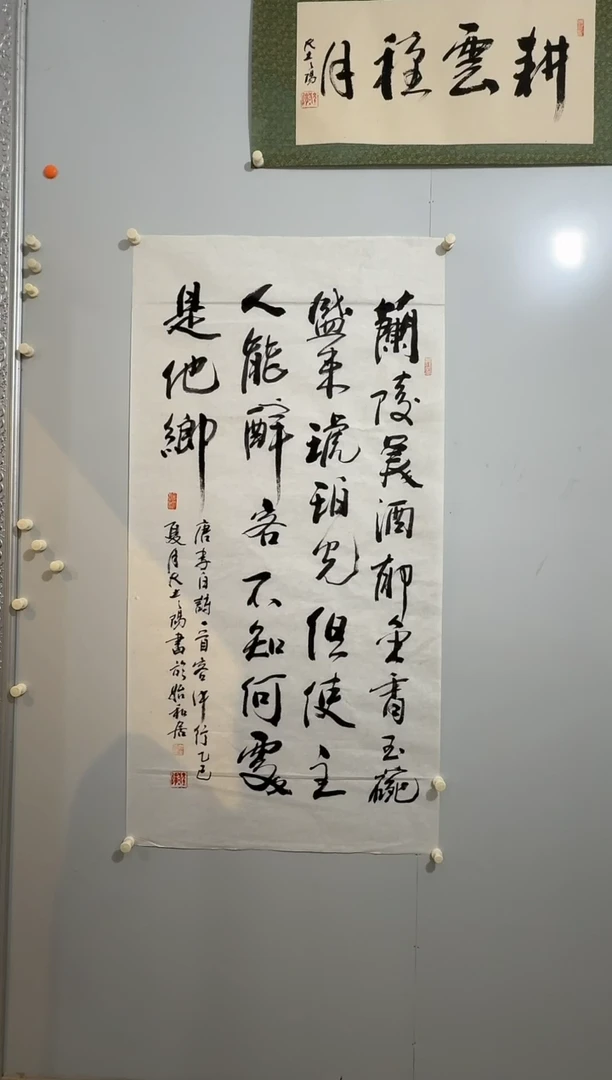 耕雲種月
蘭陵美酒郁金香玉碗
盛来琥珀光但使主
人能醉客不知何處
是他鄉
唐李白詩一首客中行乙巳
夏月
書於始和居